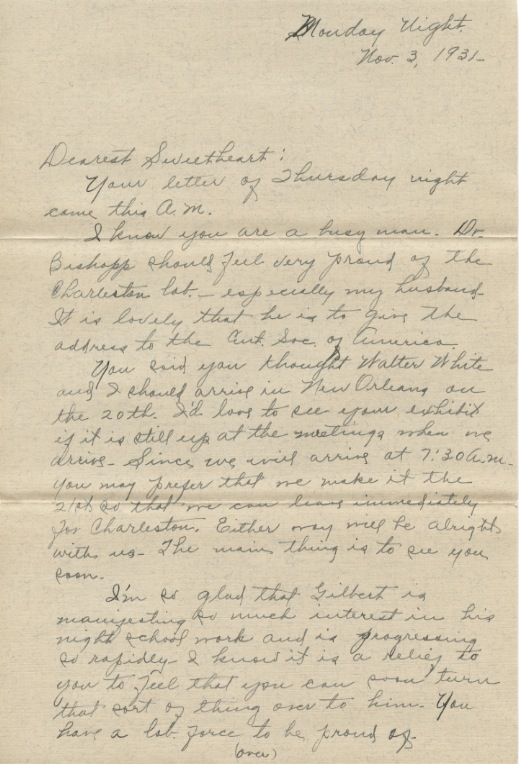 Monday Night.
Nov. 3, 1931-
Dearest Sweetheart:
Your letter of Thursday night
came this A.M.
I know you are a busy man. Dr.
Bishopp should feel very proud of the
Charleston lab. - especially my husband.
It is lovely that he is to give the
address to the Ent. Soc. of America.
You said you thought Walter White
and I should arrive in New Orleans on
the 20th. I'd love to see your exhibit
if it is still up at the meetings when we
arrive - Since we will arrive at 7:30 a.m.
you may prefer that we make it the
21st so that we can leave immediately
for Charleston. Either way will be alright
with us - The main thing is to see you
soon.
I'm so glad that Gilbert is
manifesting so much interest in his
night school work and is progressing
so rapidly - I know it is a relief to
you to feel that you can soon turn
that sort of thing over to him. You
have a lab. force to be proud of.
(over)